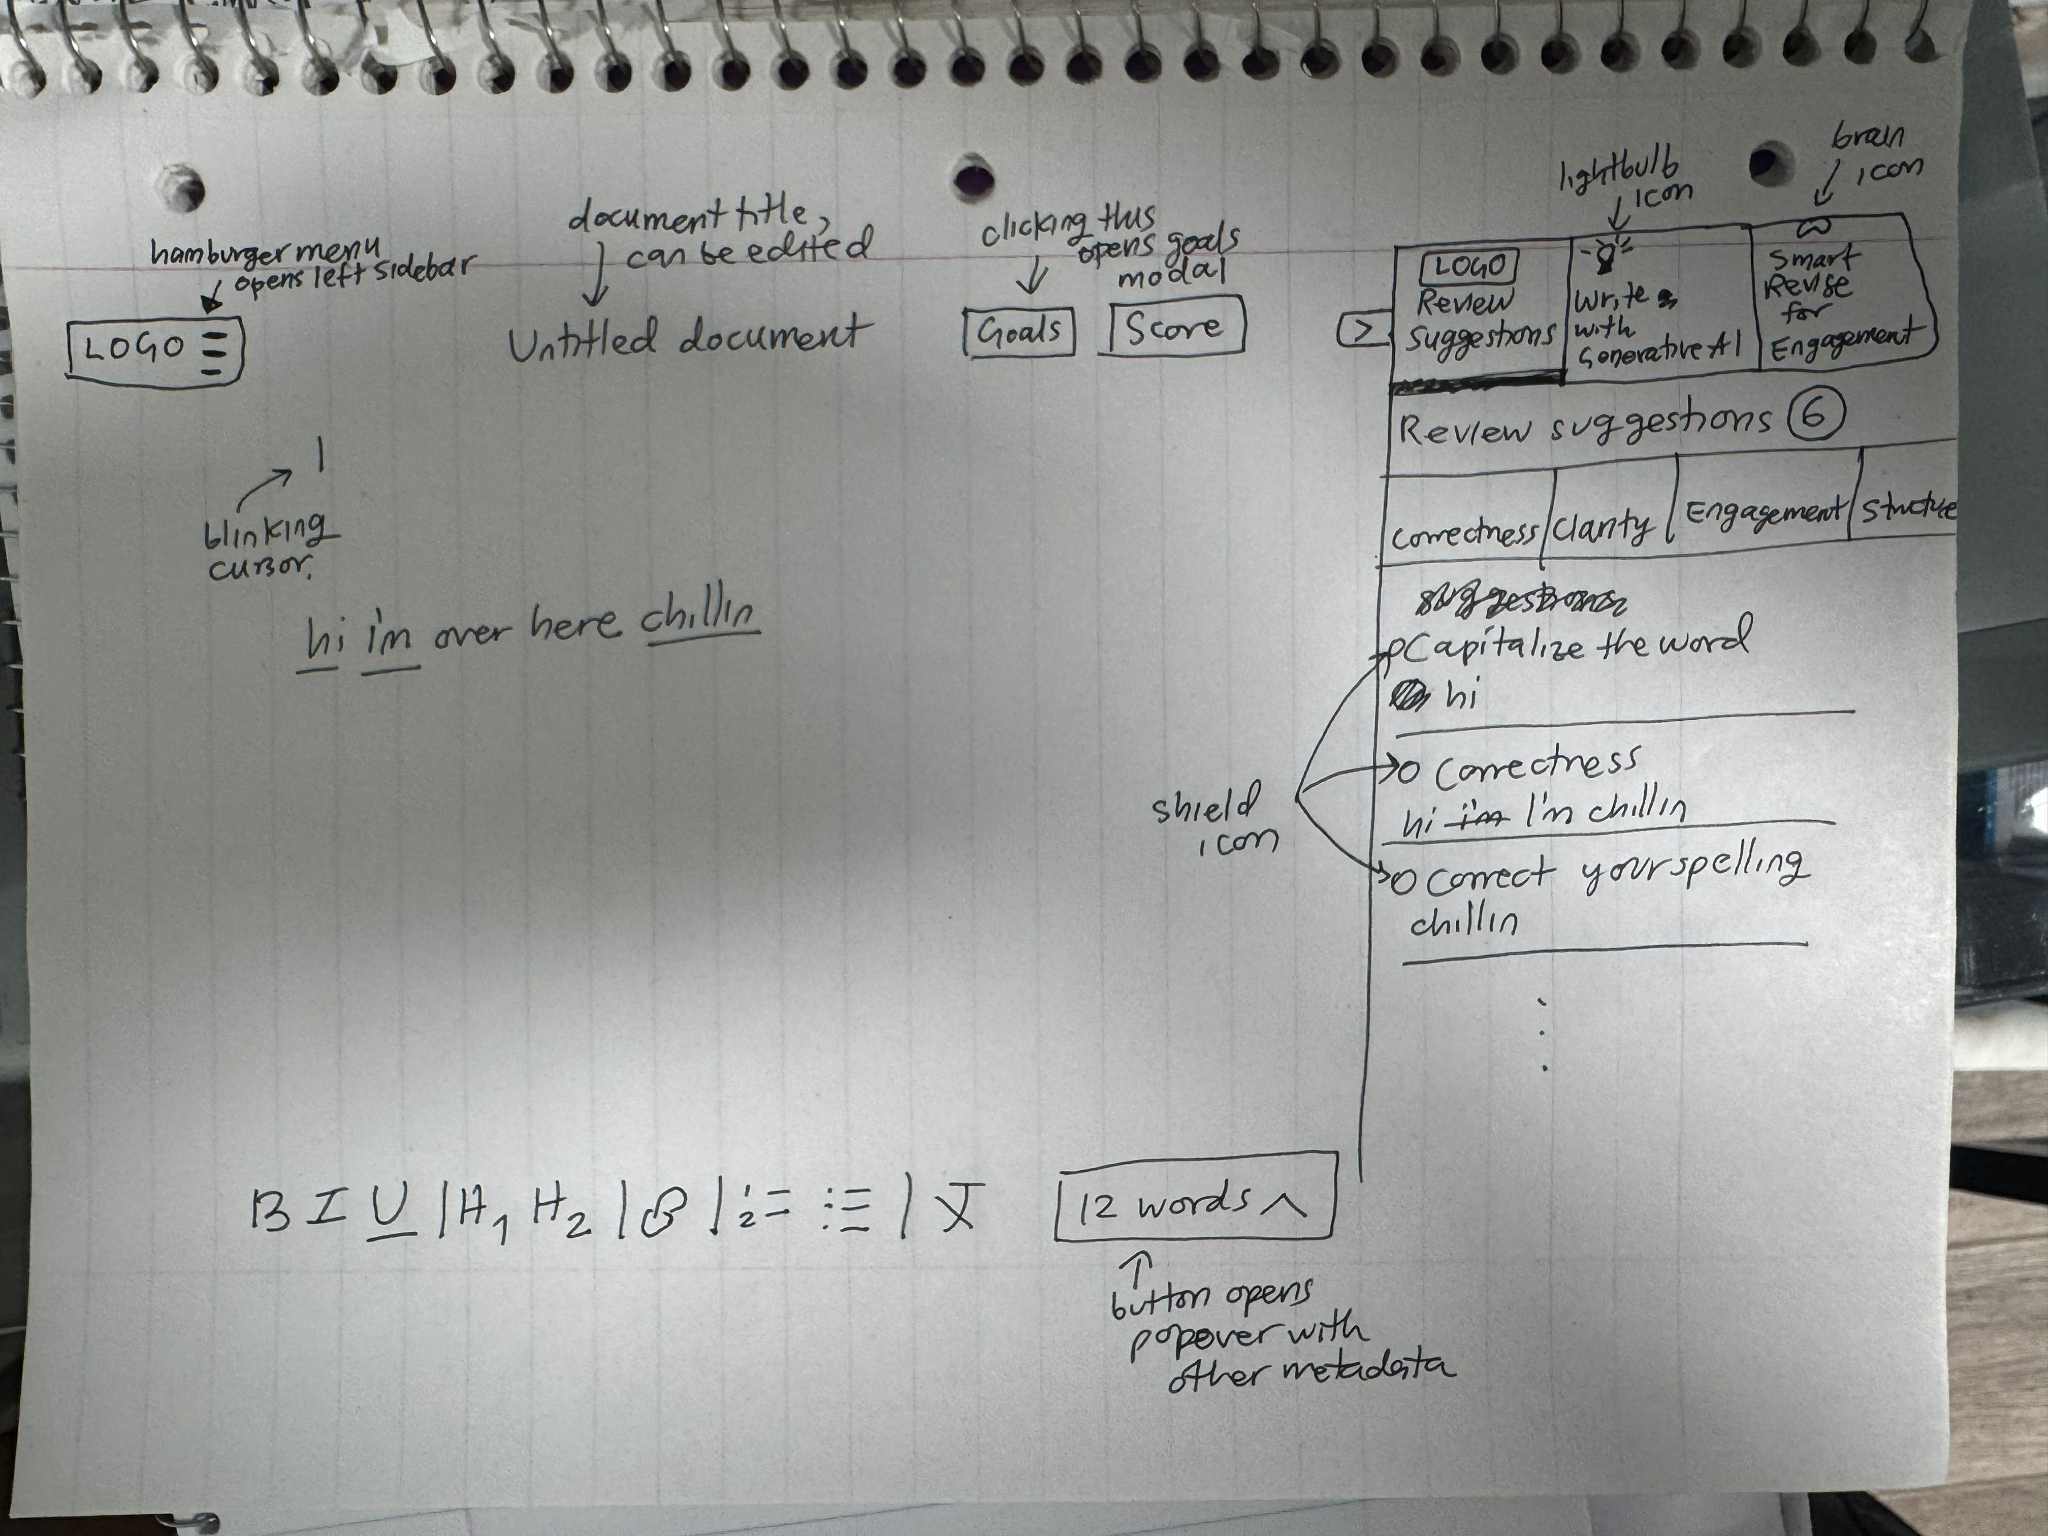 hamburger menu
opens left sidebar
LOGO
document title,
can be edited
Untitled document
clicking this
opens goals
modal
Goals
Score
lightbulb
icon
brain
icon
>
LOGO
Review
suggestions
Write
with
Generative AI
Smart
Revise
for
Engagement
Review suggestions 6
Correctness
Clarity
Engagement
Structure
blinking
cursor.
hi i'm over here chillin
Capitalize the word
hi
Correctness
hi i'm I'm chillin
Correct your spelling
chillin
shield
icon
B I U | H1 H2 | | | 
12 words ^
button opens
popover with
other metadata